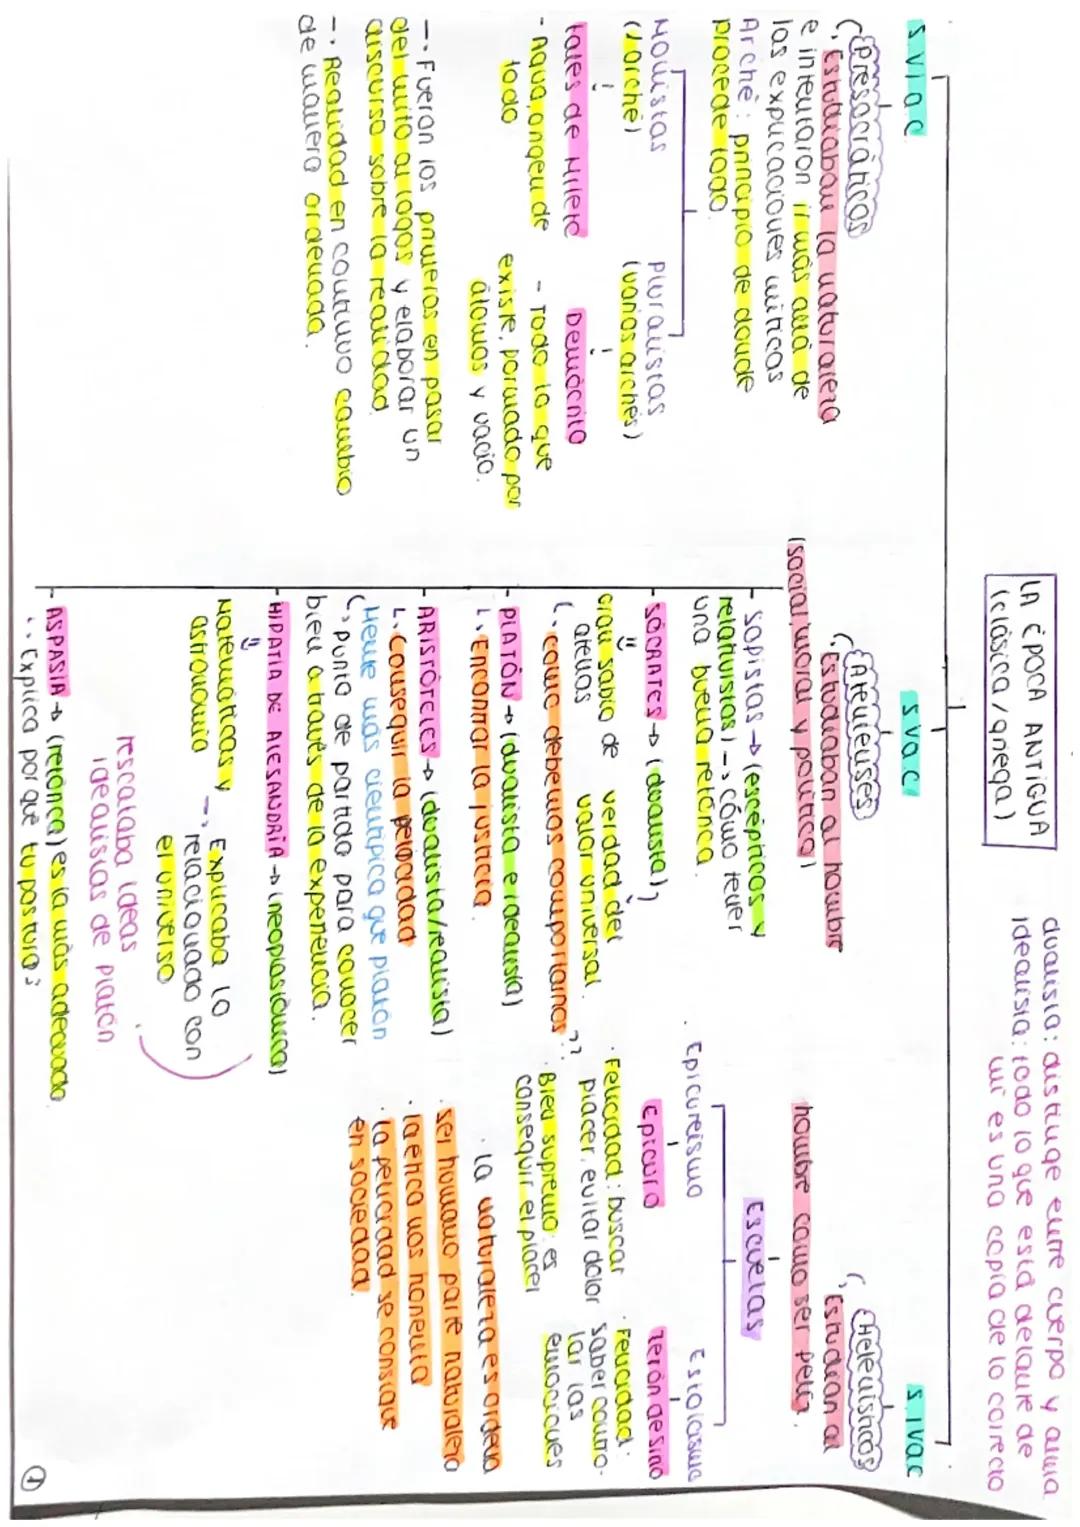 LA ÉPOCA ANTIGUA
(clásica/griega)
dualista: distinge entre cuerpo y alma
idealista: todo lo que está delante de
mí es una copia de lo correcto
S.VI a.C
(Presocráticos)
Estudiaban la naturaleza
e intentaron ir más allá de
las explicaciones míticas
Arché: principio de donde
procede todo.
Monistas
(1 arché)
Tales de Mileto
- Agua, origen de
todo
Pluralistas
(varios archés)
Demócrito
- Todo lo que
existe, formado por
átomos y vacío.
→ Fueron los primeros en pasar
del mito al logos y elaborar un
discurso sobre la realidad.
→ Realidad en continuo cambio
de manera ordenada.
S V a.C
(Atenienses)
Estudiaban al hombre
(social, moral y política)
- Sofistas → (escépticos y
relativistas) → cómo tener
una buena retórica.
- SÓCRATES → (dualista)
Gran sabio de
atenas
verdad del
valor universal.
como debemos comportarnos
PLATÓN → (dualista e idealista)
Encontrar la justicia.
ARISTÓTELES → (dualista/realista)
Conseguir la felicidad
Mente más científica que platón
punto de partida para conocer
bien a través de la experiencia.
HIPATIA DE ALESANDRÍA → (neoplatónica)
Matemáticas y
astronomía
→ Explicaba lo
relacionado con
el universo
rescataba ideas
idealistas de platón
- ASPASIA → (retórica) es la más adecuada
Explica por qué tu postura?
S. IV a.C
(Helenísticos)
Estudian al
hombre como ser feliz.
Escuelas
Epicureismo
Epicuro
· Felicidad: buscar
placer, evitar dolor
· Bien supremo: es
conseguir el placer
Estoicismo
Zenón de Sitio
· Felicidad:
saber contro-
lar las
emociones
· la naturaleza es ordena
· ser humano parte naturaleza
· la ética nos
· la felicidad se consigue
en sociedad.
1